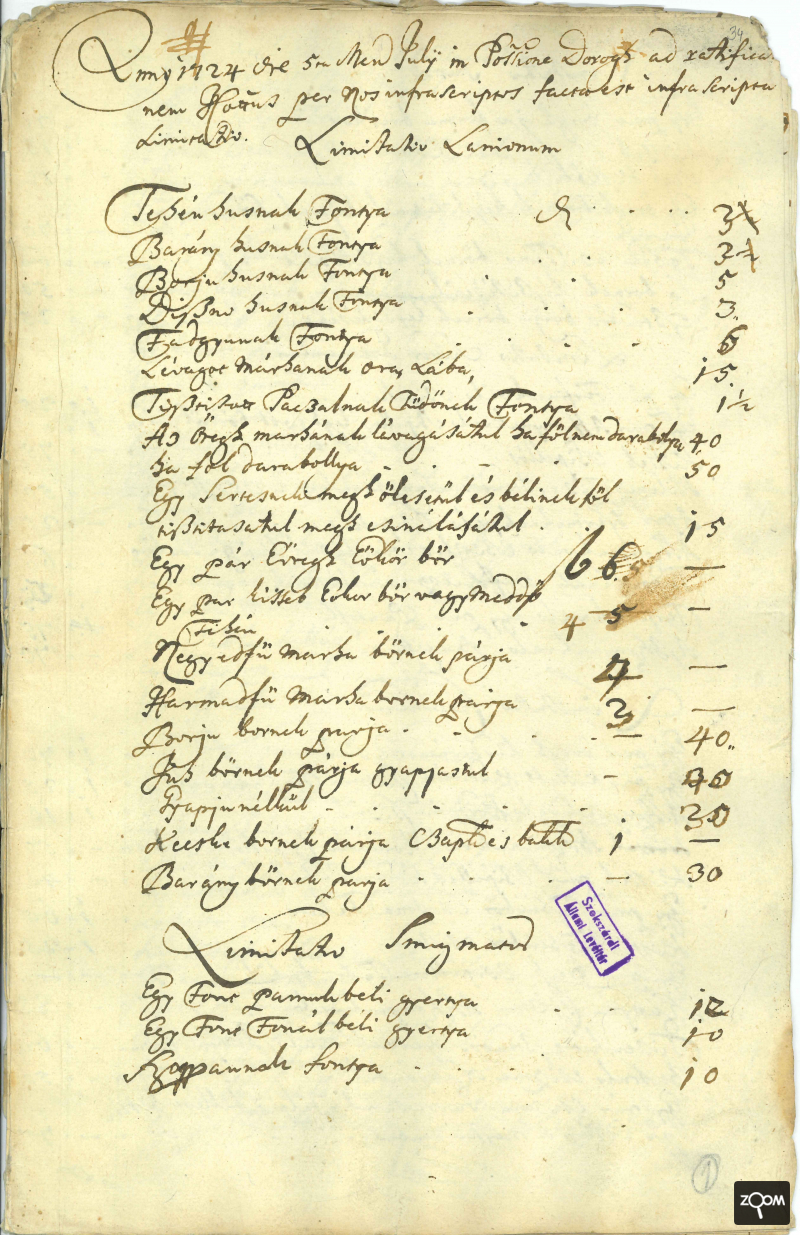 34
Anno 1724 die 5ta Mens July in Possione Dorogh ad ratifica
nem per Nos infrascriptos facta est infra scripta
Limitatio. Limitatio Lanionum
Tehén husnak Fontya d 3
Barány husnak Fontya 3
Borju husnak Fontya 5
Dißno husnak Fontya 3
Fadgyunak Fontya 6
Lévagot Marhanak Lába, 15
Tißtitot Paczalnak Tüdőnek Fontya 1½
Az Öregh marhának lévagásátul ha föl nem darabolya 40
ha föl darabollya 50
Egy Sertesnek megh ölesetül és bélinek föl
tißtitasatul megh csinálásátul 15
Egy pár Eöregh Eökör bőr 6 —
Egy par kisseb Eokor bőr vagy meddő
Tehén 4 5 —
Negyedfü Marha bőrnek párja —
Harmadfü Marha bornek párja 3 —
Borju bornek parja — 40
Juh bőrnek párja gyapjastul — 40
Gyapju nélkül
Kecske bornek párja 1 —
Barány bőrnek parja — 30
Szekszárdi
Állami Levéltár
Limitatio Smigmatod
Egy Font pamuk béli gyertya 12
Egy Font Fonál béli gyertya 10
Szappannak fontya 10
1
ZOOM